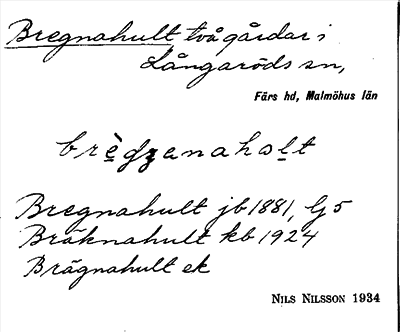 Bregnahult två gårdar i
Långaröds sn,
Färs hd, Malmöhus län
brèg̱ʒanaho̱lt
Bregnahult jb 1881, G 5
Bräknahult kb 1924
Brägnahult ek
NILS NILSSON 1934